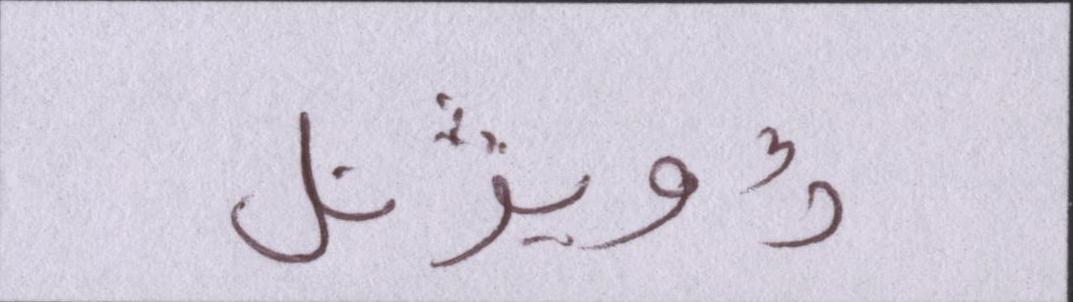 ڈویژنل